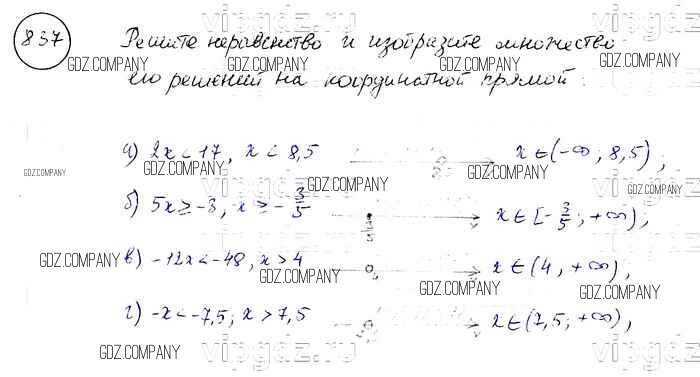 vipgdz.ru
837 Решите неравенство и изобразите множество
GDZ.COMPANY GDZ.COMPANY GDZ.COMPANY GDZ.COMPANY
его решений на координатной прямой:
а) 2x < 17, x < 8,5 x ∈ (-∞; 8,5);
GDZ.COMPANY GDZ.COMPANY GDZ.COMPANY
GDZ.COMPANY GDZ.COMPANY
б) 5x ≥ -3, x ≥ -3/5 -3/5 x ∈ [-3/5; +∞);
GDZ.COMPANY GDZ.COMPANY
в) -12x < -48, x > 4 x ∈ (4, +∞),
GDZ.COMPANY GDZ.COMPANY GDZ.COMPANY
г) -x < -7,5; x > 7,5 x ∈ (7,5; +∞),
GDZ.COMPANY GDZ.COMPANY
vipgdz.ru vipgdz.ru